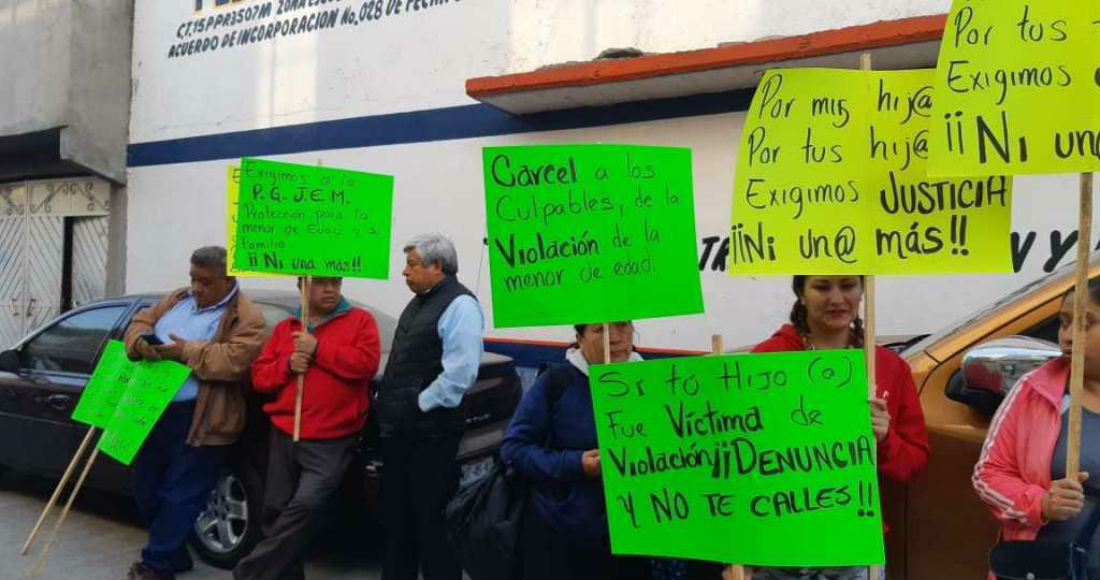 CT.15PPR3507M ZONA ESCO
ACUERDO DE INCORPORACION No. 028 DE FECHA
Exigimos a la
P. G. J. E. M.
Protección para la
menor de Edad y su
familia
¡¡Ni una más!!
Carcel a los
Culpables, de la
Violación de la
menor de edad.
Por mis hij@
Por tus hij@
Exigimos JUSTICIA
¡¡Ni un@ más!!
Por tus
Exigimos
¡¡Ni un
Si tú Hijo (a)
Fue Víctima de
Violación ¡¡DENUNCIA
Y NO TE CALLES!!
N Y